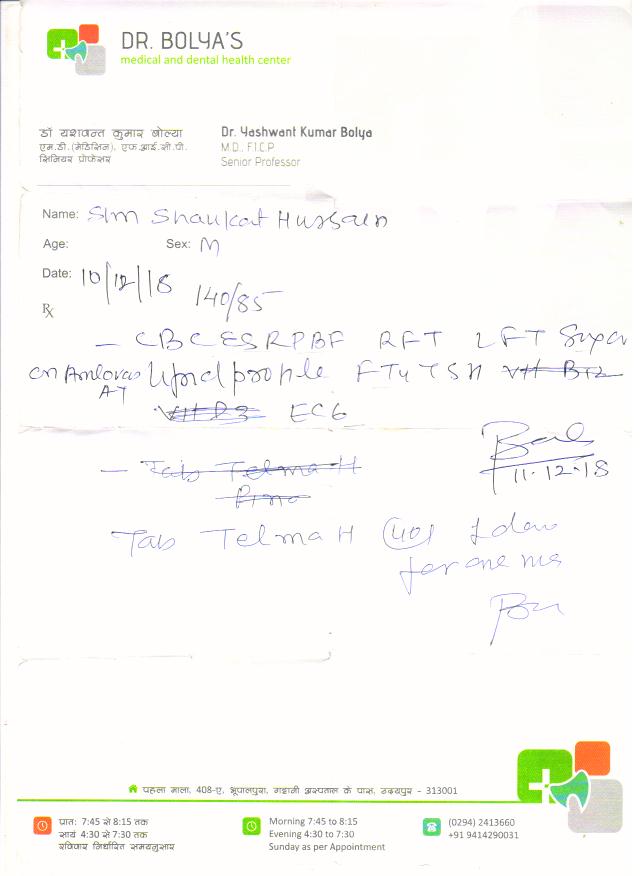 DR. BOLYA'S
medical and dental health center
डॉ यशवन्त कुमार बोल्या
एम.डी.(मेडिसिन), एफ.आई.सी.पी.
सिनियर प्रोफेसर
Dr. Yashwant Kumar Bolya
M.D., F.I.C.P
Senior Professor
Name: Shaukat Hussain
Age: Sex: M
Date: 10/12/18 140/85
Rx
— CBC ESR PBF RFT LFT
on Amlovas Lipid profile FT4 TSH
AT
ECG
11.12.18
— Tab Telma H
Tab Telma H (40)
for one
पहला माला, 408-ए, भूपालपुरा, गट्टानी अस्पताल के पास, उदयपुर - 313001
प्रातः 7:45 से 8:15 तक
सायं 4:30 से 7:30 तक
रविवार निर्धारित समयानुसार
Morning 7:45 to 8:15
Evening 4:30 to 7:30
Sunday as per Appointment
(0294) 2413660
+91 9414290031